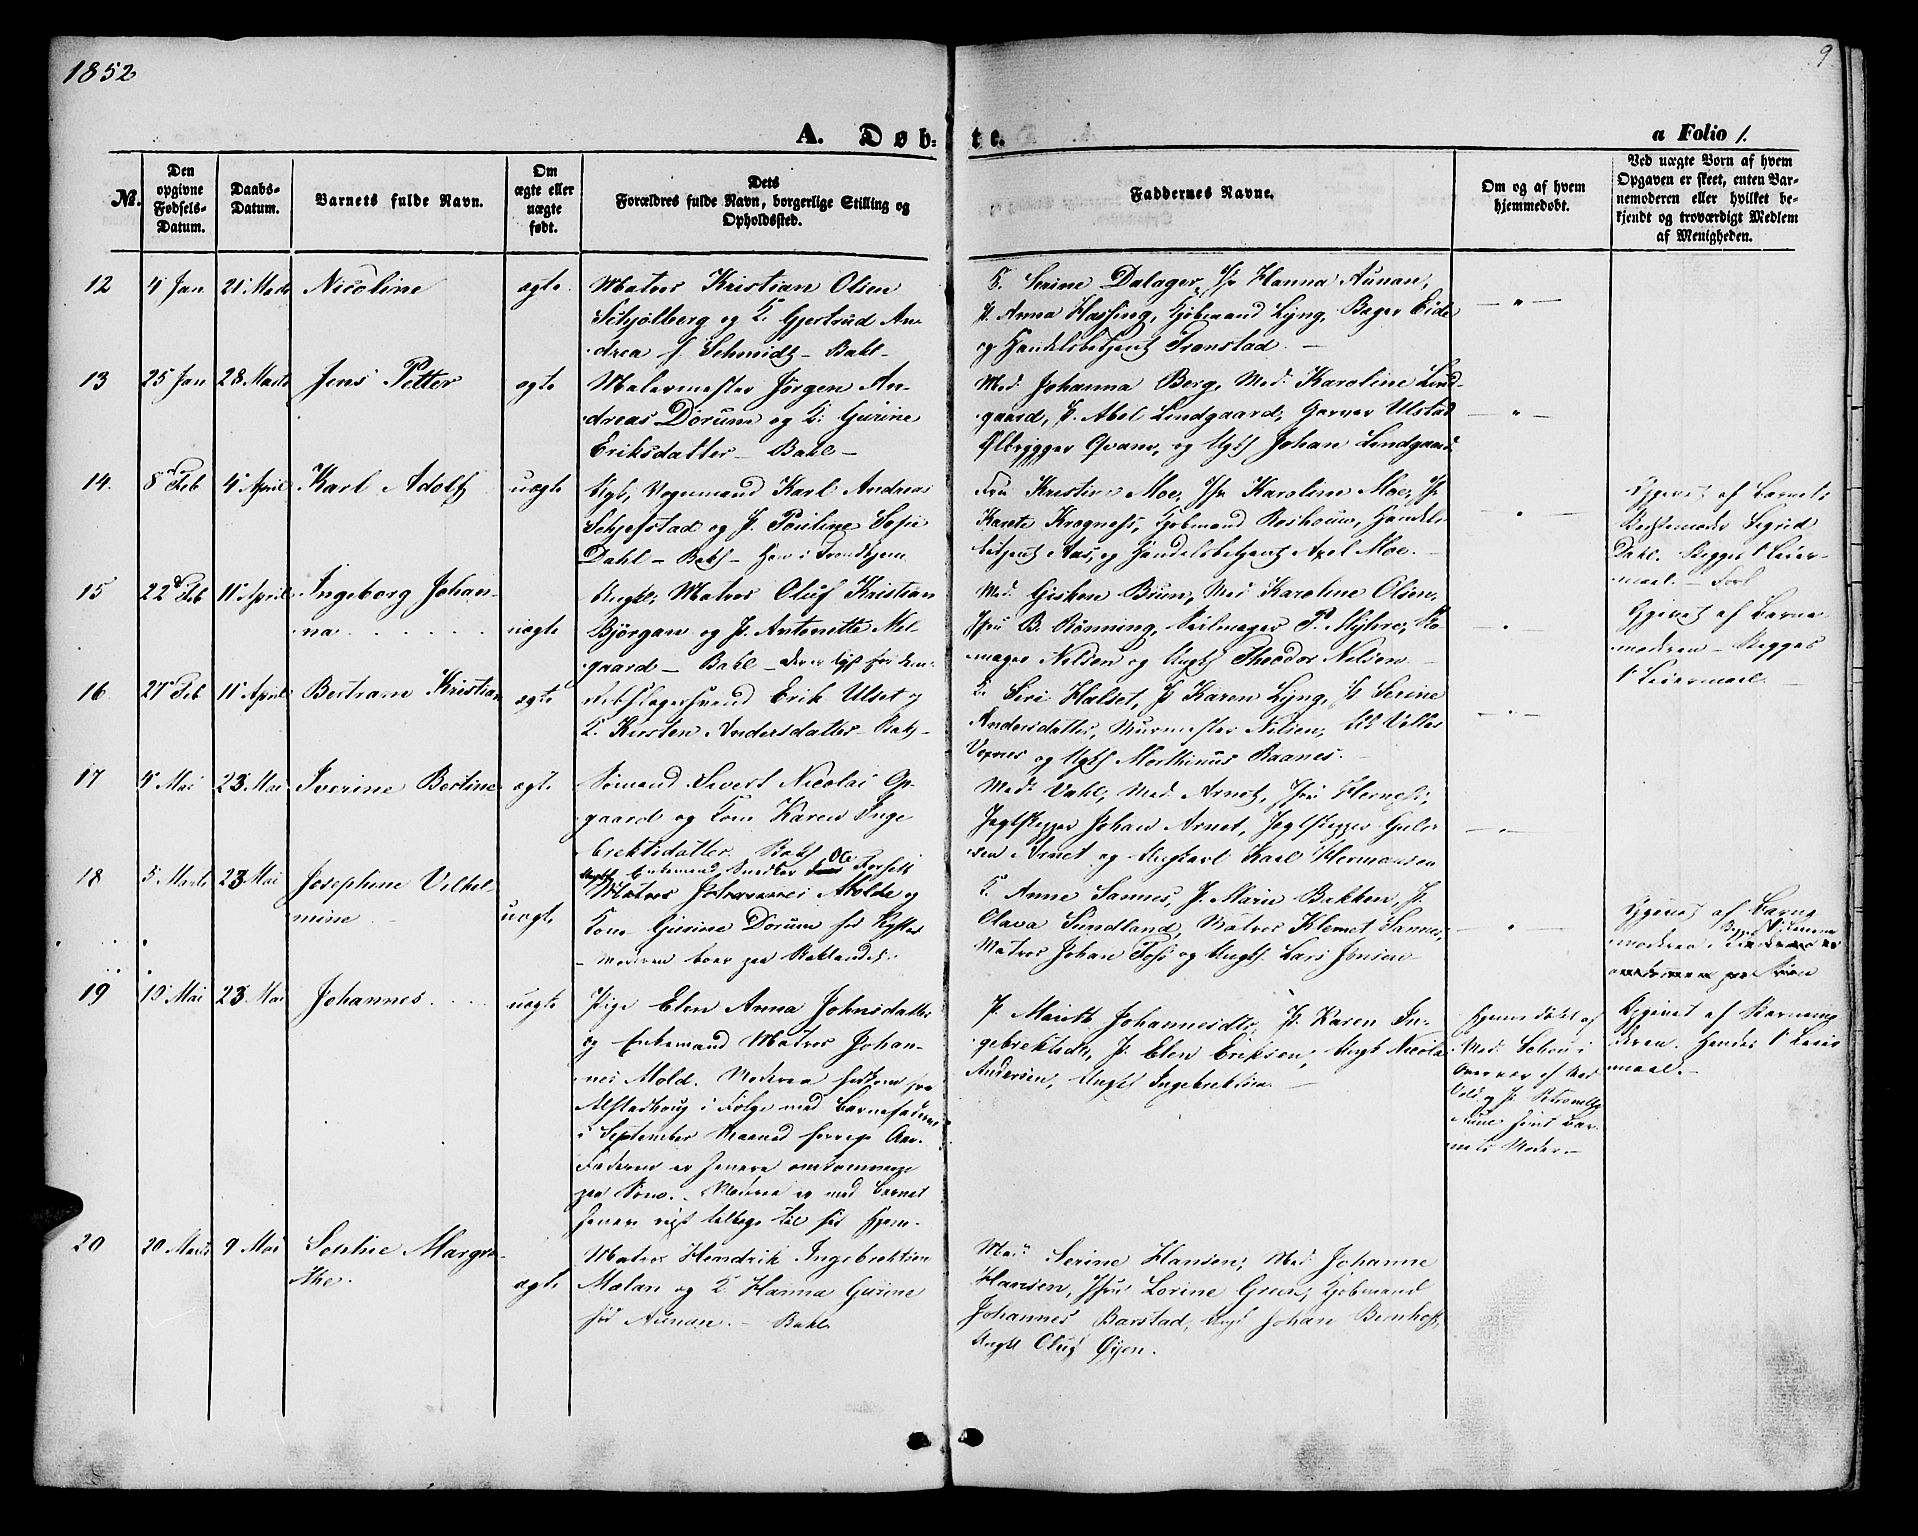 1852
9
A. Døb-
te.
a Folio 1.
No.
Den opgivne Fødsels-Datum.
Daabs-Datum.
Barnets fulde Navn.
Om ægte eller uægte født.
Dets Forældres fulde Navn, borgerlige Stilling og Opholdssted.
Faddernes Navne.
Om og af hvem hjemmedøbt.
Ved uægte Born af hvem Opgaven er skeet, enten Barnemoderen eller hvilket bekjendt og troværdigt Medlem af Menigheden.
12 4 Jan 21 Marts Nicoline ægte
Matros Kristian Olsen
Schjølberg og K. Gjertrud An-
drea f. Schmidt - Bakl-
K. Serine Dalager, Jfr Hanna Aunan,
P. Anna Hassing, Kjøbmand Lyng, Bager Eide
og Handelsbetjent Tronstad. -
13 25 Jan 28 Marts Jens Petter ægte
Malermester Jørgen An-
dreas Dorum og K. Gurine
Eriksdatter - Bakl -
Md. Johanna Berg, Md. Karoline Lind-
gaard, P. Abel Lindgaard, Garver Ulstad
Ølbrygger Qvam, og Ugk Johan Lindgaard
14. 8 Feb 4 April Karl Adolf uægte
Ugk, Vognmand Karl Andreas
Schjefstad og P. Pauline Sofie
Dahl - Bakl -
Fru Kristine Moe, Jfr Karoline Moe, Jfr
Karete Kragness, Kjøbmand Roskouw, Handels-
betjent Aas, og Handelsbetjent Axel Moe. -
Opgivet af Barnets
Sigrid
Dahl. Begges 1 Leier-
maal. -
15 22 Feb 11 April Ingeborg Johan-
na . . . . . . uægte
Ungk, Matros Oluf Kristian
Bjørgan og P. Antonette Mel-
gaard - Bakl -
Md. Gisken Brun, Md Karoline Olsen,
Jfru B. Rønning, Seilmager P. Myhre, Sko-
mager Nilsen og Ungk Theodor Nilsen
Opgivet af Barne-
moderen - Begges
1 Leiermaal. -
16 27 Feb 11 April Bertram Kristian ægte
Erik Ulset og
K. Kirsten Andersdatter Bakl -
K. Seri Halset, P. Karen Lyng, P. Serine
Andersdatter, Murmester Nilsen,
og Ugk Morthinus Raanes. -
17 4 Mai 23 Mai Iverine Bertine ægte
Sømand Sivert Nicolai Op-
gaard og Kone Karen Inge-
brektsdatter. Bakl
Md. Vahl, Md. Arnet, Jfru Hernes,
Jagtskipper Johan Arnet, Jagtskipper Guler-
sen Arnet og Ungkarl Karl Hermansen
18 5 Marts 23 Mai Josephine Vilhel-
mine - uægte
Enkemand Snedker Ole Forseth
Matros Johannes Molde og
Kone Gurine Dorum
- Moderen boer paa Baklandet.
K. Anne Sannes, P. Marie Bekken, P.
Olava Sundland, Matros Klemet Sannes,
Matros Johan Foss og Ungk. Lars Jensen
Opgivet af Barne
moderen
19 15 Mai 23 Mai Johannes . . . . uægte
Pige Elen Anna Johnsdatter
og Enkemand Matros Johan-
nes Mold. Moderen
Alstadhoug i Følge med Barnefaderen
i September Maaned forrige Aar.
Faderen er senere omkommen
paa Søen. - Moderen er med Barnet
senere reist tilbage til sit Hjem -
P. Marith Johannesdtr, P. Karen In-
gebrektsdtr, P. Elen Eriksen, Ungk Nicolai
Andersen, Ungkl Ingebrektsen. -
Hjemmedøbt af
Md. i
Overvær af Md
og P. Petronelle
Aune samt Bar-
nets Moder. -
Opgivet af Barnemo-
deren. Hendes 1 Leier
maal. -
20 20 Marts 9 Mai Sophie Margre-
the. ægte
Matros Hendrik Ingebrektsen
Malan og K. Hanna Gurine
fød Aunan. - Bakl
Md. Serine Hansen, Md Johanne
Hansen, Jfru Lorine Green, Kjøbmand
Johannes Barstad, Ungk Johan Benhoft,
Ungkl Oluf Øyen.